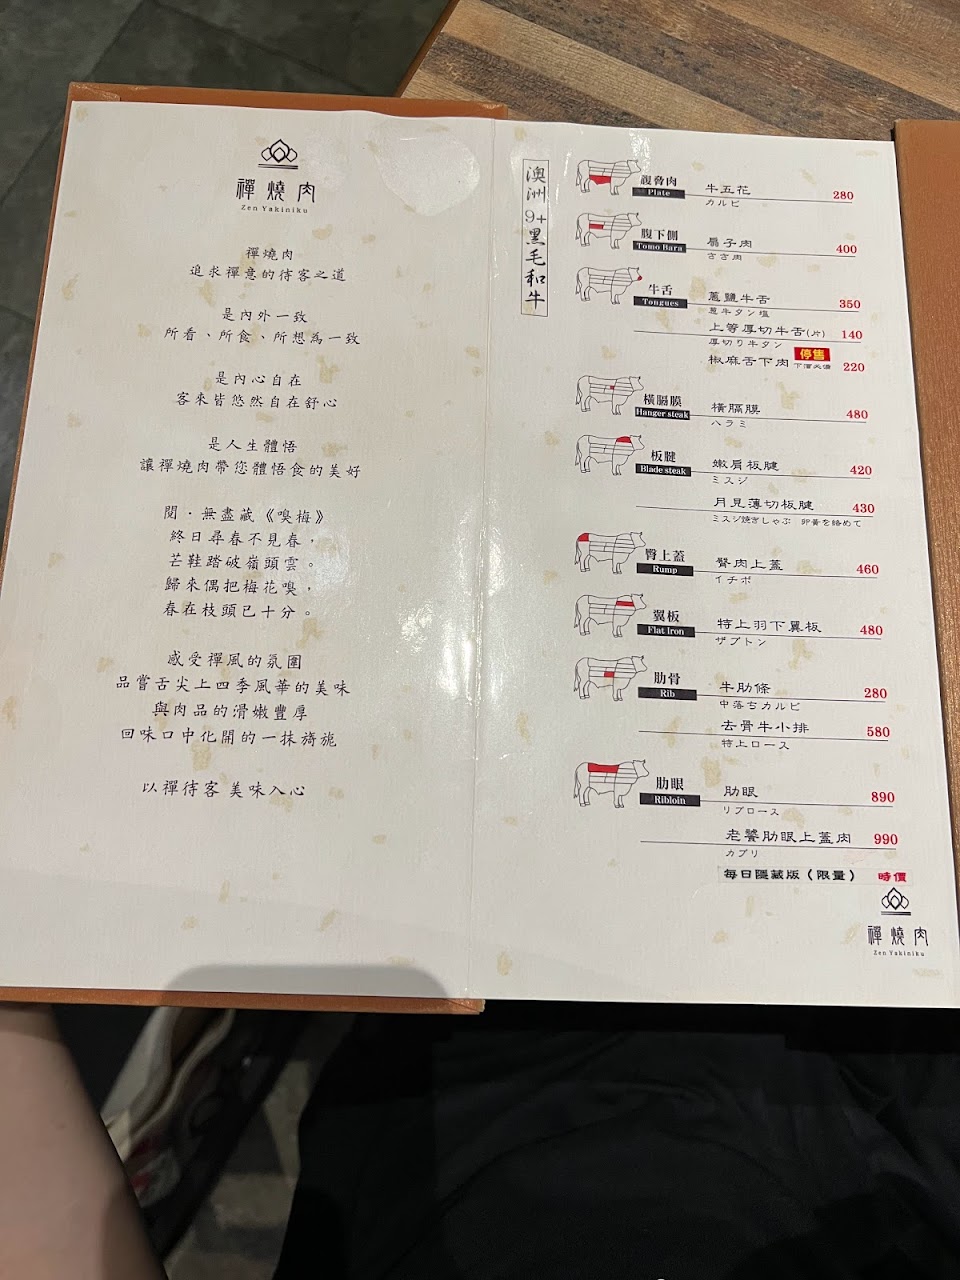 禪燒肉
Zen Yakiniku
禪燒肉
追求禪意的待客之道
是內外一致
所看、所食、所想為一致
是內心自在
客來皆悠然自在舒心
是人生體悟
讓禪燒肉帶您體悟食的美好
閱・無盡藏《嗅梅》
終日尋春不見春，
芒鞋踏破嶺頭雲。
歸來偶把梅花嗅，
春在枝頭已十分。
感受禪風的氛圍
品嘗舌尖上四季風華的美味
與肉品的滑嫩豐厚
回味口中化開的一抹旖旎
以禪待客 美味入心
澳洲9+黑毛和牛
腹脅肉
Plate
牛五花 280
カルビ
腹下側
Tomo Bara
扇子肉 400
ささ肉
牛舌
Tongues
蔥鹽牛舌 350
葱牛タン塩
上等厚切牛舌(片) 140
厚切り牛タン
停售
椒麻舌下肉 下酒必備 220
橫膈膜
Hanger steak
橫膈膜 480
ハラミ
板腱
Blade steak
嫩肩板腱 420
ミスジ
月見薄切板腱 430
ミスジ焼きしゃぶ 卵黄を絡めて
臀上蓋
Rump
臀肉上蓋 460
イチボ
翼板
Flat Iron
特上羽下翼板 480
ザブトン
肋骨
Rib
牛肋條 280
中落ちカルビ
去骨牛小排 580
特上ロース
肋眼
Ribloin
肋眼 890
リブロース
老饕肋眼上蓋肉 990
カブリ
每日隱藏版（限量） 時價
禪燒肉
Zen Yakiniku